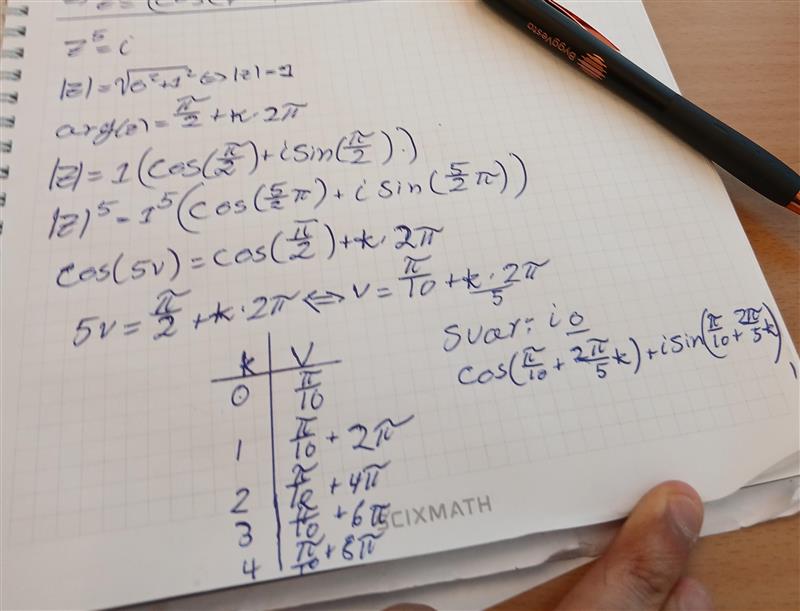 z⁵=i
|z|=√0²+1² ⇔ |z|=1
arg(z)=π/2+k·2π
|z|=1(cos(π/2)+isin(π/2))
|z|⁵=1⁵(cos(5/2π)+i sin(5/2π))
cos(5v)=cos(π/2)+k·2π
5v=π/2+k·2π⇔v=π/10+k·2π/5
k v
0 π/10
1 π/10+2π
2 π/10+4π
3 π/10+6π
4 π/10+8π
Svar:
cos(π/10+2π/5k)+isin(π/10+2π/5k)
SCIXMATH
Byggvesta